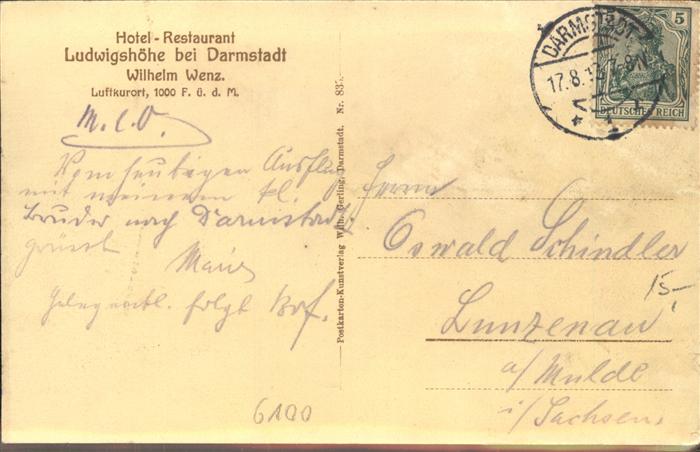 Hotel - Restaurant
Ludwigshöhe bei Darmstadt
Wilhelm Wenz.
Luftkurort, 1000 F. ü. d. M.
M. l. O.
Vom heutigen Ausflug
mit meinem kl.
Bruder nach Darmstadt
grüsst
Gelegentl. folgt Brf.
6100
Postkarten-Kunstverlag Wilh. Gerling, Darmstadt. Nr. 83
DARMSTADT
17.8.13. 7-8N
5
DEUTSCHES REICH
Herrn
Oswald Schindler
Lunzenau
a/ Mulde
i/ Sachsen.
15-